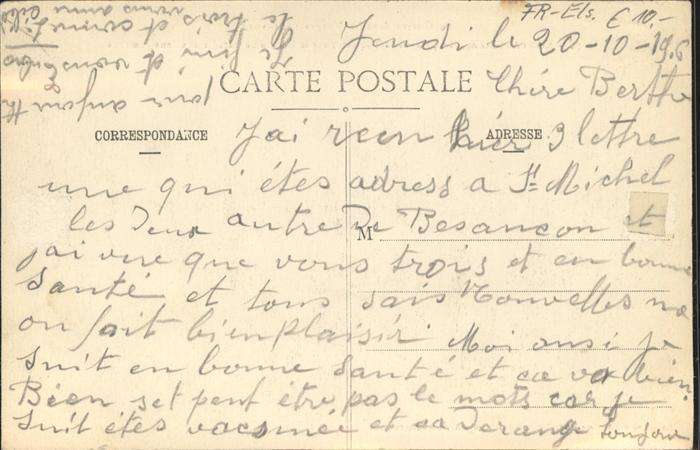 FR-Els. € 10.-
Jeudi le 20-10-19
CARTE POSTALE
Chère Berthe
CORRESPONDANCE
ADRESSE
J'ai recu hier 3 lettre
une qui étes adress a St. Michel
les deux autre de Besancon et
M
j'ai vue que vous trois et en bonne
Santé et tous sais Nouvelles
on fait bien plaisir Moi ausi je
suit en bonne Santé et ca va bien
Bien set peut étre pas le mots car je
suit étes vacsinée et ca derange toujour
pour anjourd
Je fini et vous
le trois et